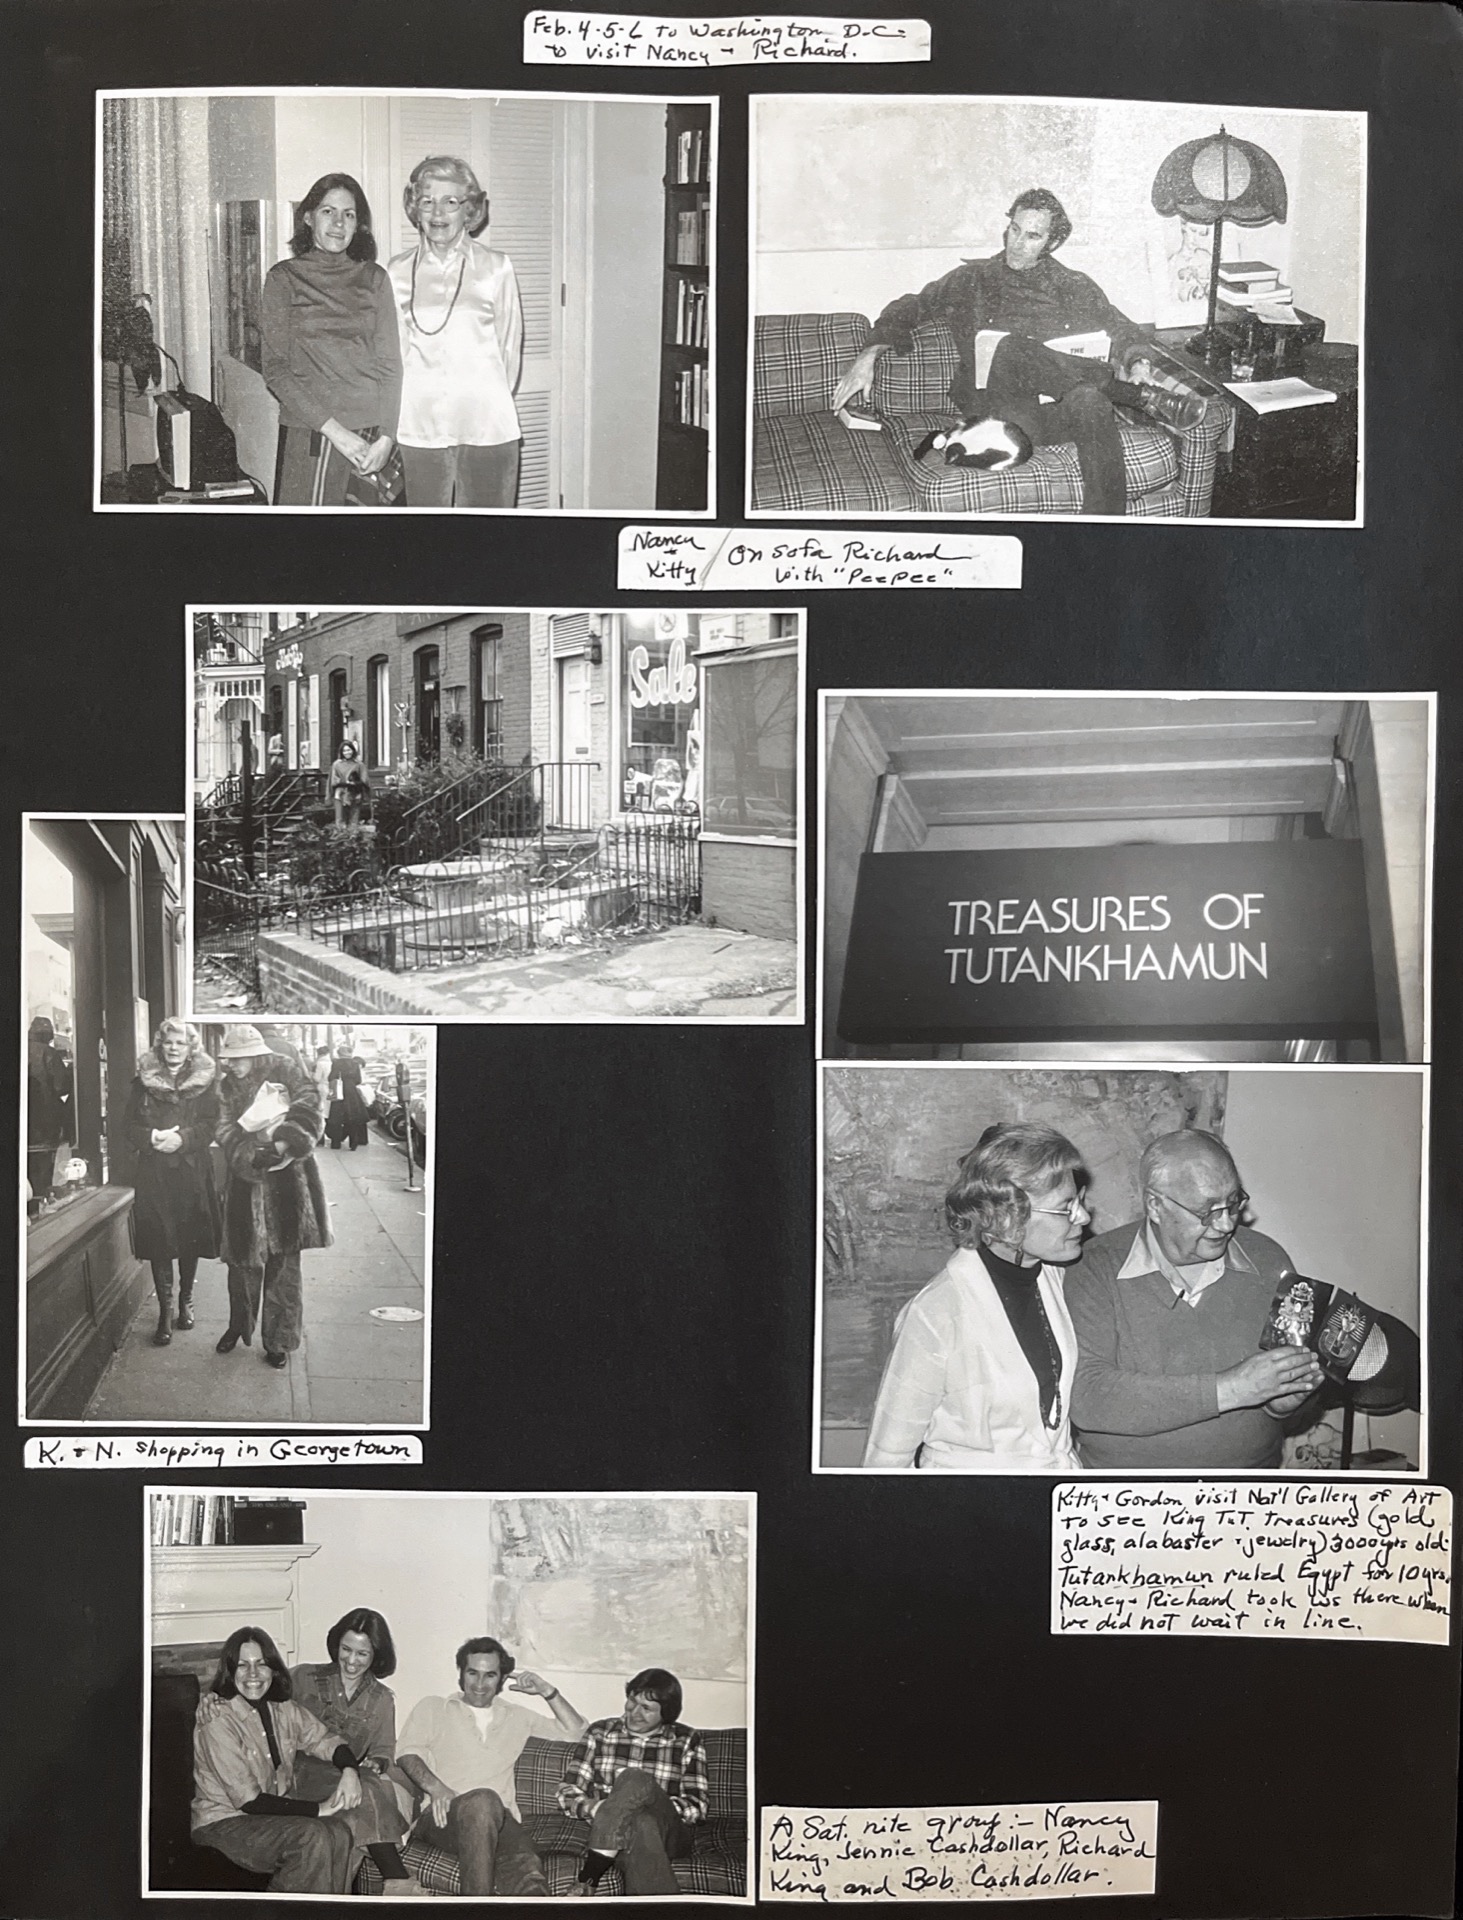 Feb. 4-5-6 to Washington D.C:
to visit Nancy + Richard.
THE
Nancy
+
Kitty
On sofa Richard
with "PeePee"
Sale
TREASURES OF
TUTANKHAMUN
K. + N. shopping in Georgetown
Kitty + Gordon visit Nat'l Gallery of Art
to see King Tut treasures (gold,
glass, alabaster + jewelry) 3000 yrs old.
Tutankhamun ruled Egypt for 10 yrs.
Nancy + Richard took us there when
we did not wait in line.
A Sat. nite group:- Nancy
King, Jennie Cashdollar, Richard
King and Bob Cashdollar.